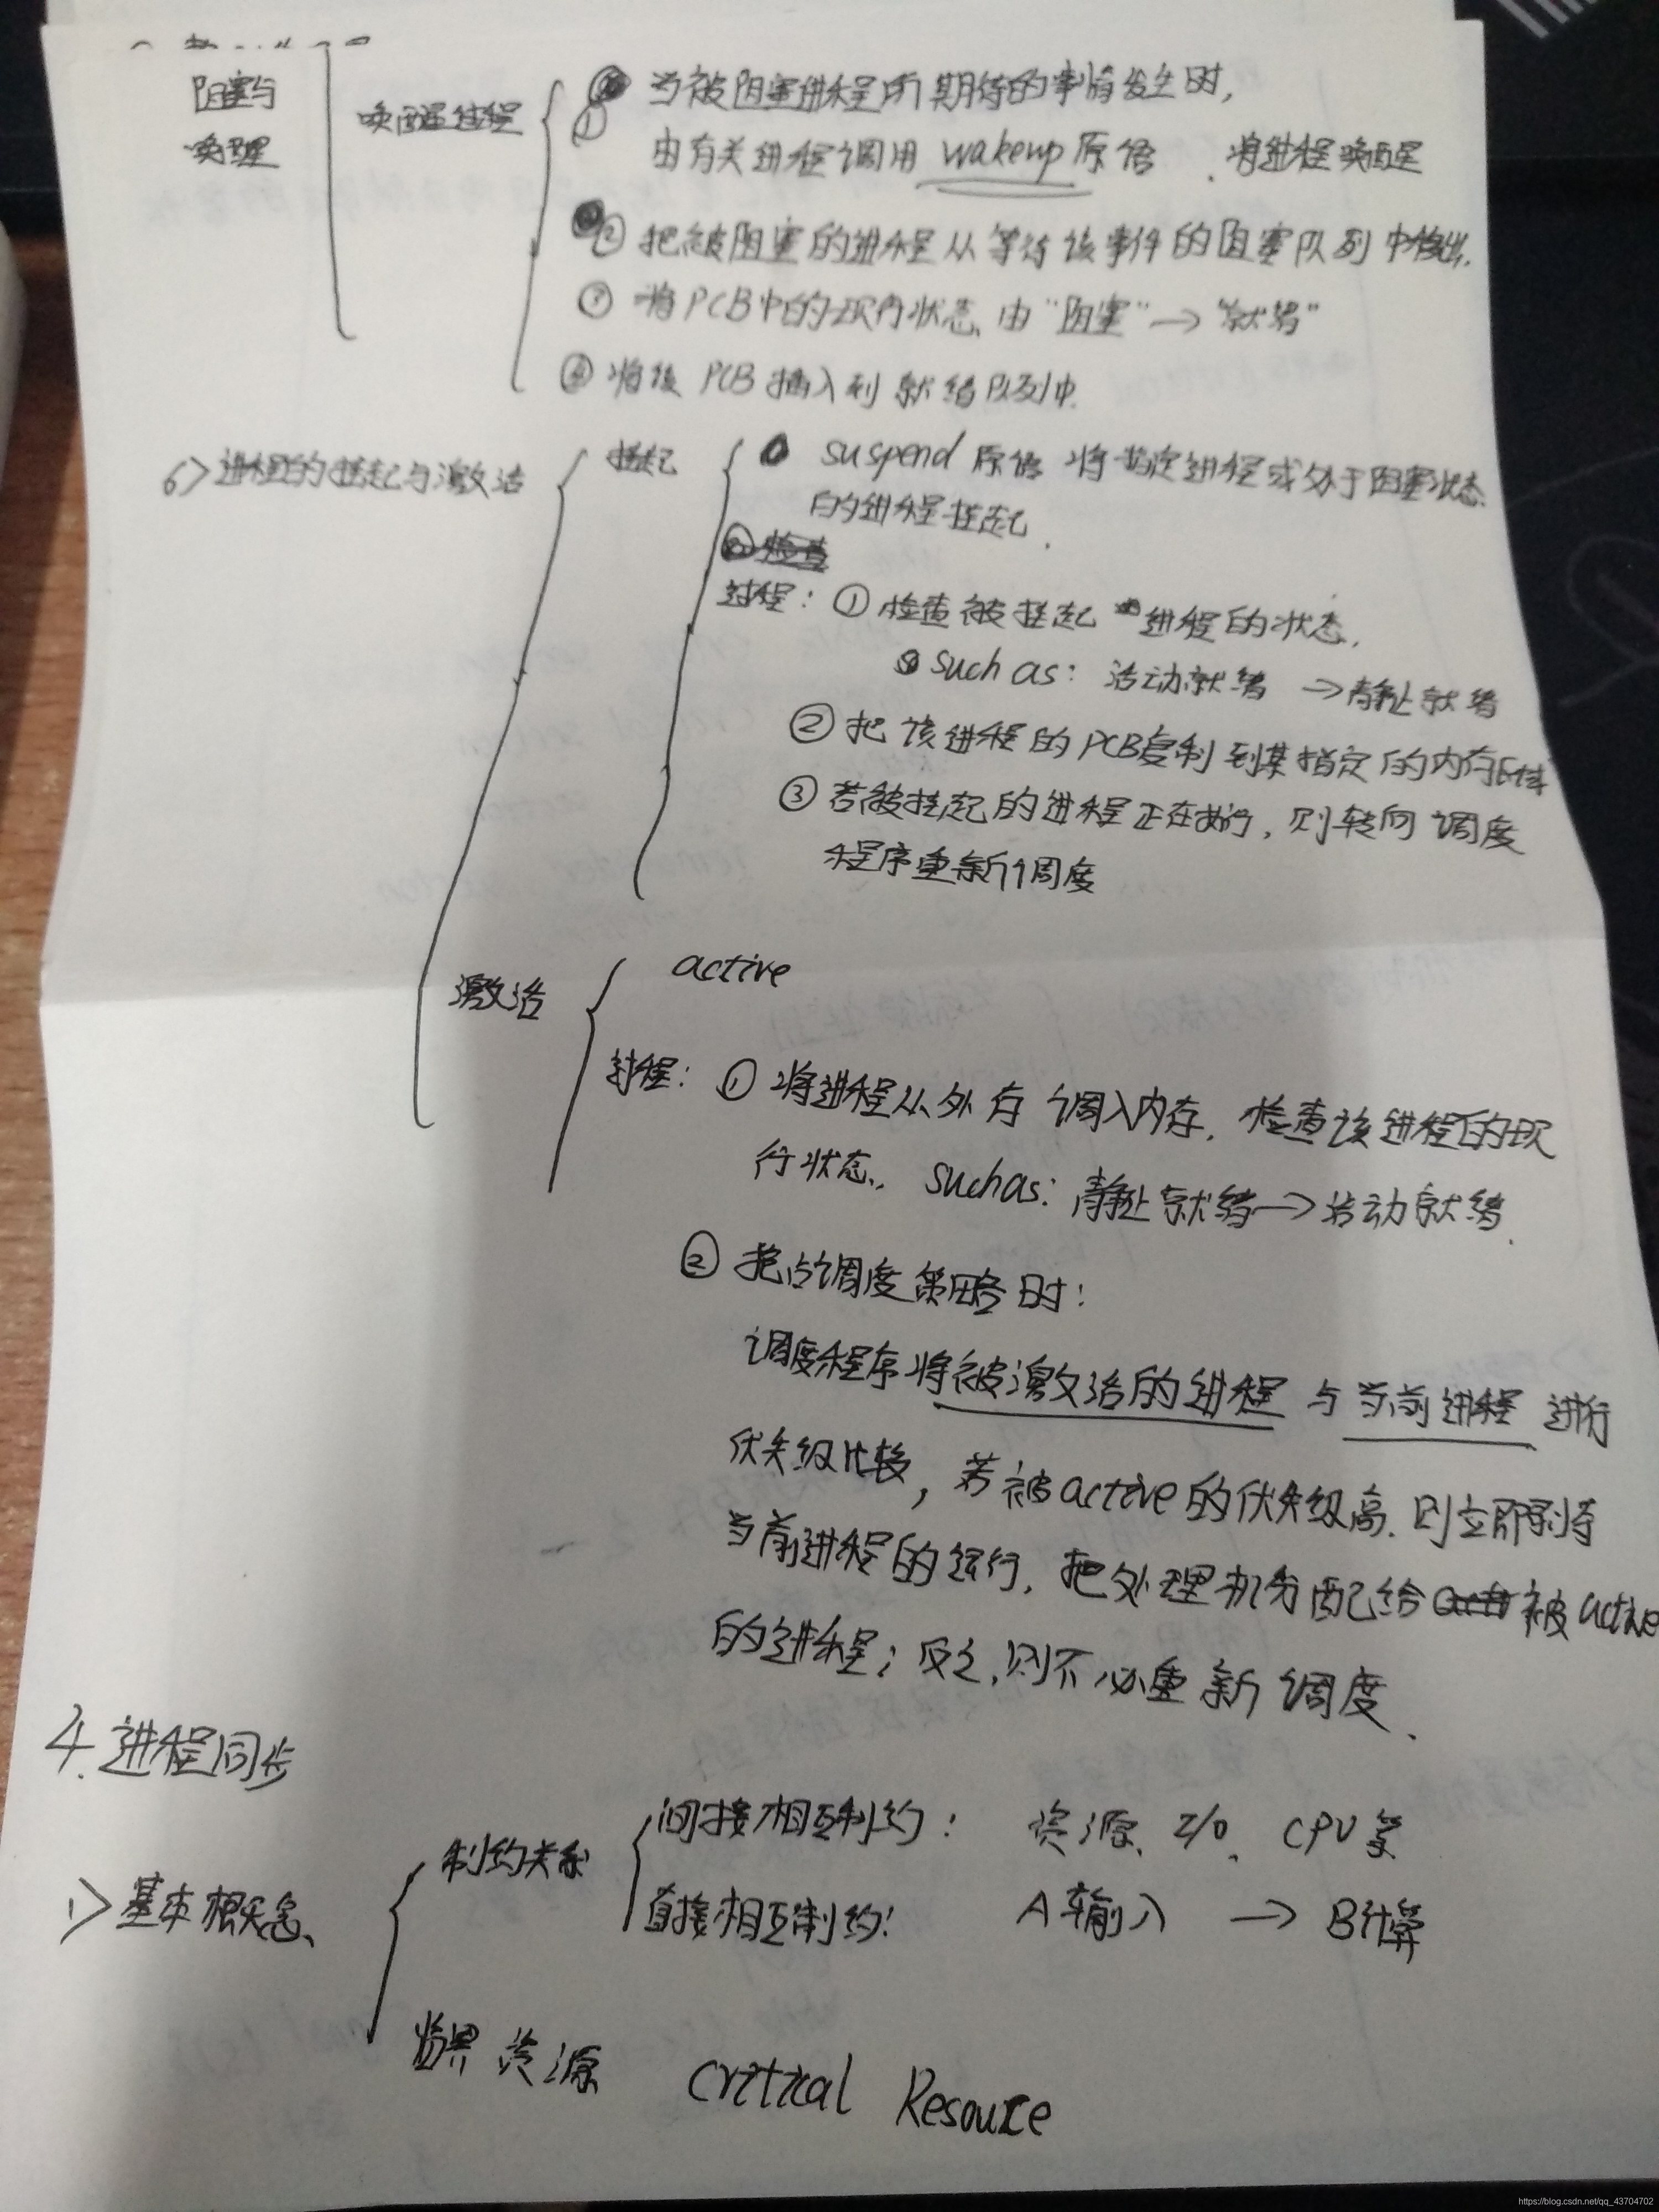 阻塞与
唤醒
唤醒过程
① 当被阻塞进程所期待的事情发生时,
由有关进程调用 wakeup 原语 . 将进程唤醒
② 把被阻塞的进程从等待该事件的阻塞队列中移出.
③ 将PCB中的现行状态由“阻塞”→“就绪”
④ 将该 PCB 插入到就绪队列中.
6> 进程的挂起与激活
挂起
suspend 原语 将指定进程或处于阻塞状态
的进程挂起.
过程: ① 检查被挂起进程的状态.
such as: 活动就绪 →静止就绪
② 把该进程的PCB复制到某指定的内存区域
③ 若被挂起的进程正在执行, 则转向调度
程序重新调度
激活
active
过程: ① 将进程从外存调入内存. 检查该进程的现
行状态. such as: 静止就绪→活动就绪
② 抢占调度策略时:
调度程序将被激活的进程与当前进程进行
优先级比较, 若被active的优先级高. 则立即剥夺
当前进程的运行. 把处理机分配给被active
的进程; 反之, 则不必重新调度.
4. 进程同步
1> 基本概念、
制约关系
间接相互制约: 资源、I/O、CPU等
直接相互制约: A输入 → B计算
临界资源 Critical Resource
https://blog.csdn.net/qq_43704702